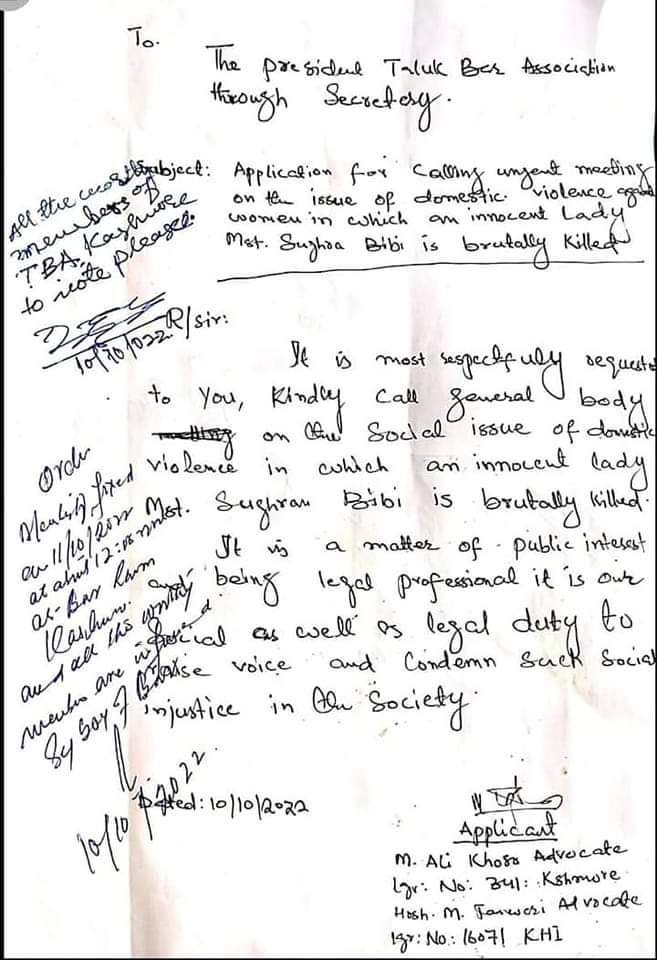 To.
The president Taluk Bar Association
through Secretary.
Subject: Application for Calling urgent meeting
on the issue of domestic violence against
women in which an innocent Lady
Mst. Sughra Bibi is brutally Killed
All the worthy
members of
TBA Kashmore
to note please.
10/10/022
R/sir:
It is most respectfully request
to You, Kindly Call general body
meeting on the Social issue of domestic
violence in which an innocent lady
Mst. Sughran Bibi is brutally Killed.
It is a matter of public interest
and being legal professional it is our
Social as well as legal duty to
raise voice and Condemn Such Social
injustice in the Society.
Order
Meeting fixed
on 11/10/2022
at about 12:00
at Bar Room
and all the worthy
members are informed
By
10/10/2022
Dated: 10/10/2022
Applicant
M. Ali Khoso Advocate
Lgr: No: 341: Kshmore
Hosh. M. Advocate
lgr: No.: 16071 KHI